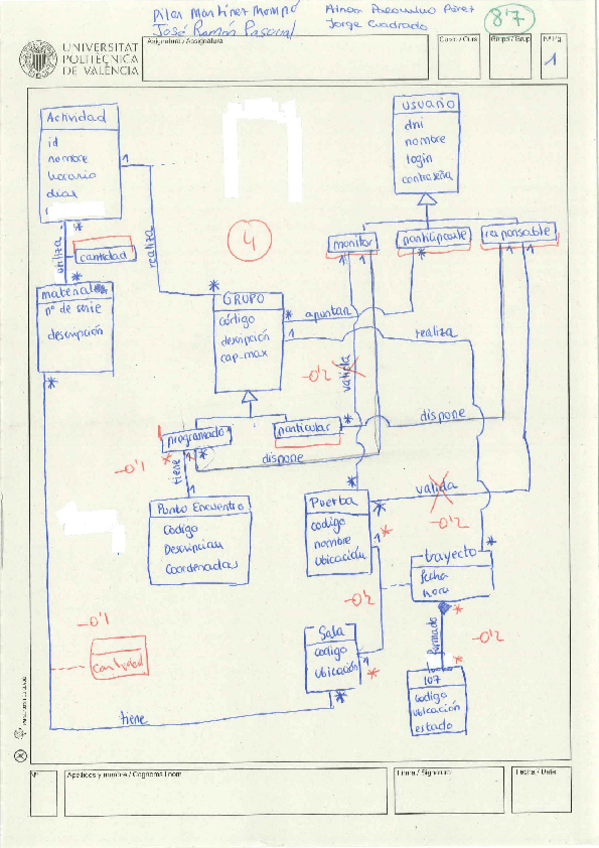 Pilar Martínez Mompó
José Ramón Pascual
Jorge Cuadrado
8'7
UNIVERSITAT
POLITÈCNICA
DE VALÈNCIA
Asignatura / Assignatura
Curso / Curs
1
Actividad
id
nombre
horario
dias
1
*
utiliza
cantidad
realiza
*
material
nº de serie
descripción
*
4
usuario
dni
nombre
login
contraseña
monitor
participante
responsable
1
1
*
1
1
*
GRUPO
código
descripción
cap_max
*
apuntan
1
realiza
-0'2
valida
programado
particular
*
dispone
1
*
1
*
-0'1
tiene
dispone
1
Punto Encuentro
Codigo
Descripcion
Coordenadas
*
Puerta
codigo
nombre
ubicación
*
valida
-0'2
1
*
*
trayecto
fecha
hora
-0'2
*
formado
-0'2
*
Sala
codigo
ubicación
1
*
*
107
codigo
ubicación
estado
-0'1
cantidad
tiene
Nº
Apellidos y nombre / Cognoms i nom
Firma / Signatura
Fecha / Data